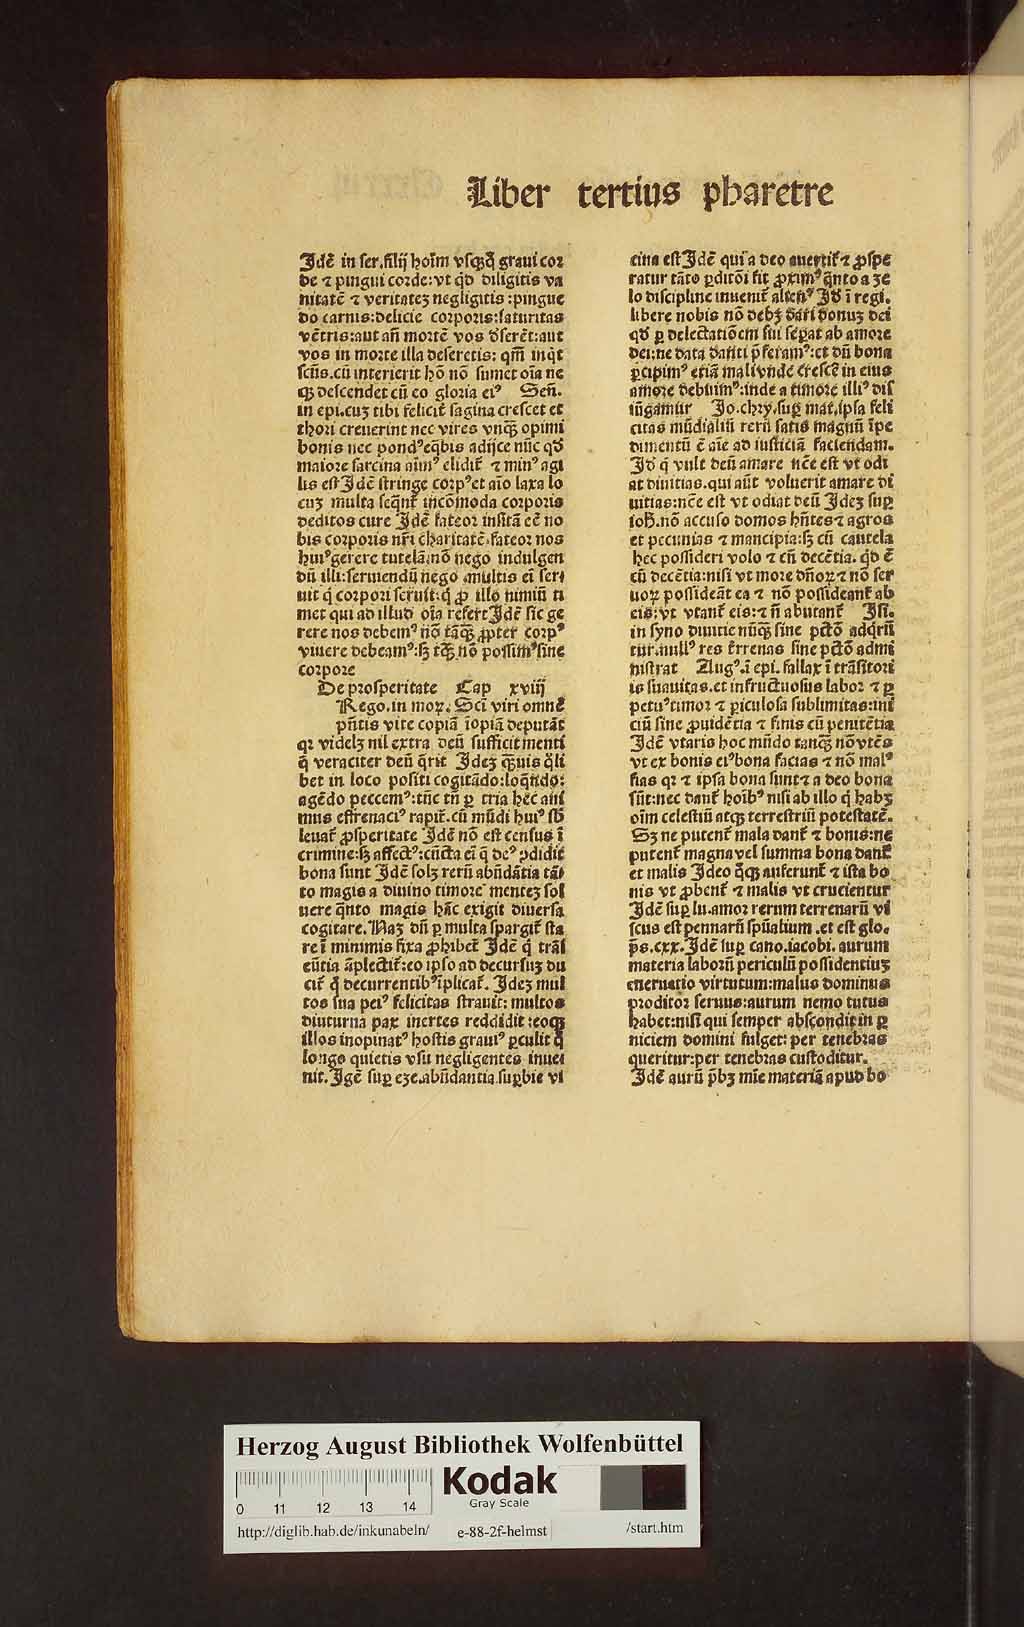 Liber tertius pharetre
Jdē in ser. filij hoīm vsq̄q̄ graui cor
de ⁊ pingui corde: vt qͥd diligitis va
nitatē ⁊ veritateꝫ negligitis: pingue
do carnis: delicie corporis: saturitas
vētris: aut an̄ mortē vos d̄serēt: aut
vos in morte illa deseretis: qm̄ inqͥt
scūs. cū interierit hō nō sumet oīa ne
qꝫ descendet cū eo gloria eiꝰ Sen̄.
in epi. cuꝫ tibi felicit̄ sagina crescet et
thori creuerint nec vires vnqꝫ opimi
bonis nec pondꝰ eq̄bis adijce nūc qd̓
maiore sarcina aīmꝰ elidit̄ ⁊ minꝰ agi
lis est Jdē stringe corpꝰ et aīo laxa lo
cuꝫ multa seqūt̄ incōmoda corporis
deditos cure Jdē fateor insitā eē no
bis corporis nr̄i charitatē. fateor nos
huiꝰ gerere tutelā. nō nego indulgen
dū illi: seruiendū nego multis ei ser
uit q̄ corpori seruit: q̄ ꝓ illo nimiū ti
met qui ad illud oīa refert Jdē sic ge
rere nos debemꝰ nō tāqꝫ ꝓpter corpꝰ
viuere debeamꝰ: sꝫ tāqꝫ nō possimꝰ sine
corpore
De prosperitate Cap xviij
Rego. in moꝝ. Scī viri omnē
pn̄tis vite copiā īopiā deputāt
qꝛ videlꝫ nil extra deū sufficit menti
q̄ veraciter deū q̄rit Jdeꝫ qꝫuis qͥli
bet in loco positi cogitādo: loqn̄do:
agēdo peccemꝰ: tūc tn̄ ꝑ tria hec ani
mus effrenaciꝰ rapit̄. cū mūdi huiꝰ sb̄
leuat̄ ꝓsperitate Jdē nō est census ī
crimine: sꝫ affectꝰ: cūcta ei q̄ deꝰ ꝯdidit
bona sunt Jdē solꝫ rerū abūdātia tā
to magis a diuino timore menteꝫ sol
uere qn̄to magis hāc exigit diuersa
cogitare. Naꝫ dū ꝑ multa spargit̄ sta
re ī minimis fixa ꝓhibet̄ Jdē q̄ trās
eūtia āplectit̄: eo ipso ad decursuꝫ du
cit̄ q̄ decurrentibꝰ īplicat̄. Jdeꝫ mul
tos sua peiꝰ felicitas strauit: multos
diuturna pax inertes reddidit: eoqꝫ
illos inopinatꝰ hostis grauiꝰ ꝑculit q̄
longe quietis vsu negligentes inue
nit. Jdē suꝑ eze. abūdantia suꝑbie vi
cina est Jdē qui a deo auertit̄ ⁊ ꝓspe
ratur tāto ꝑditōi fit ꝓximꝰ qn̄to a ze
lo discipline inuenit̄ alienꝰ Jd̄ ī regi.
libere nobis nō debꝫ dari donuꝫ dei
qd̓ ꝑ delectatiōem sui seꝑat ab amore
dei: ne data danti p̄feramꝰ: et dū bona
ꝑcipimꝰ etiā mali vnde crescē in eius
amore debuimꝰ: inde a timore illiꝰ dis
iūgamur Jo. chry. suꝑ mat. ipsa feli
citas mūdialiū rerū satis magnū īpe
dimentū ē aīe ad iusticiā faciendam.
Jd̄ q̄ vult deū amare ncē est vt odi
at diuitias. qui aūt voluerit amare di
uitias: ncē est vt odiat deū Jdeꝫ suꝑ
ioh̄. nō accuso domos hn̄tes ⁊ agros
et pecunias ⁊ mancipia: sꝫ cū cautela
hec possideri volo ⁊ cū decētia. qͥd ē
cū decētia: nisi vt more dn̄oꝝ ⁊ nō ser
uoꝝ possideāt ea ⁊ nō possideant̄ ab
eis: vt vtant̄ eis: ⁊ nō abutant̄ Isi.
in syno diuitie nūqꝫ sine pctō adqͥrū
tur. nullꝰ res terrenas sine pctō admi
nistrat Augꝰ. ī epi. fallax ī trāsitori
is suauitas. et infructuosus labor ⁊ ꝑ
petuꝰ timor ⁊ ꝑiculosa sublimitas: ini
ciū sine ꝓuidētia ⁊ finis cū penitētia
Jdē vtaris hoc mūdo tanqꝫ nō vtēs
vt ex bonis eiꝰ bona facias ⁊ nō malꝰ
fias qꝛ ⁊ ipsa bona sunt ⁊ a deo bona
sūt: nec dant̄ hoībꝰ nisi ab illo q̄ habꝫ
oīm celestiū atqꝫ terrestriū potestatē.
Sꝫ ne putent̄ mala dant̄ ⁊ bonis: ne
putent̄ magna vel summa bona dant̄
et malis Jdeo q̄qꝫ auferunt̄ ⁊ ista bo
nis vt ꝓbent̄ ⁊ malis vt crucientur
Jdē suꝑ lu. amor rerum terrenarū vi
scus est pennarū spūalium. et est glo.
p̄s. cxx. Jdē suꝑ cano. iacobi. aurum
materia laborū periculū possidentiuꝫ
eneruatio virtutum: malus dominus
proditor seruus: aurum nemo tutus
habet: nisi qui semper abscondit in ꝑ
niciem domini fulget: per tenebras
queritur: per tenebras custoditur.
Jdē aurū p̄bꝫ mīe materiā apud bo
Herzog August Bibliothek Wolfenbüttel
Kodak
Gray Scale
0 11 12 13 14
http://diglib.hab.de/inkunabeln/ e-88-2f-helmst /start.htm